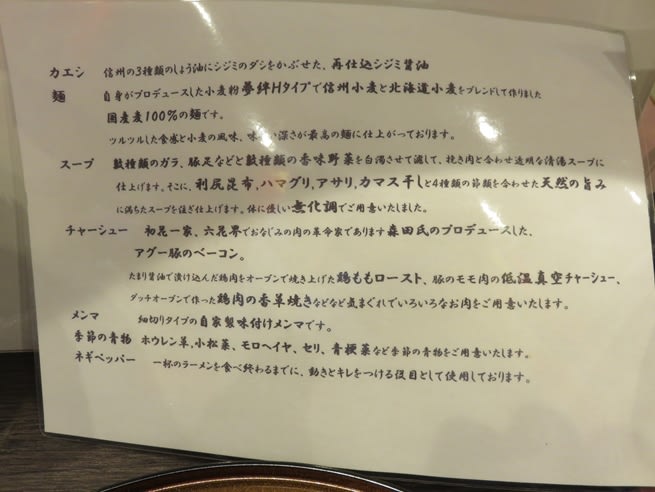 カエシ 信州の3種類のしょう油にシジミのダシをかぶせた、再仕込シジミ醤油
麺 自身がプロデュースした小麦粉夢絆Hタイプで信州小麦と北海道小麦をブレンドして作りました
国産麦100%の麺です。
ツルツルした食感と小麦の風味、味 い深さが最高の麺に仕上がっております。
スープ 数種類のガラ、豚足などと数種類の香味野菜を白濁させて濾して、挽き肉と合わせ透明な清湯スープに
仕上げます。そこに、利尻昆布、ハマグリ,アサリ,カマス干しと4種類の節類を合わせた天然の旨み
に満ちたスープを注ぎ仕上げます。体に優しい無化調でご用意いたしました。
チャーシュー 初花一家、六花界でおなじみの肉の革命家であります森田氏のプロデュースした、
アグー豚のベーコン。
たまり醤油で漬け込んだ鶏肉をオーブンで焼き上げた鶏ももロースト、豚のモモ肉の低温真空チャーシュー、
ダッチオーブンで作った鶏肉の香草焼きなどなど気まぐれでいろいろなお肉をご用意いたします。
メンマ 細切りタイプの自家製味付けメンマです。
季節の青物 ホウレン草,小松菜、モロヘイヤ、セリ、青梗菜など季節の青物をご用意いたします。
ネギペッパー 一杯のラーメンを食べ終わるまでに、動きとキレをつける役目として使用しております。